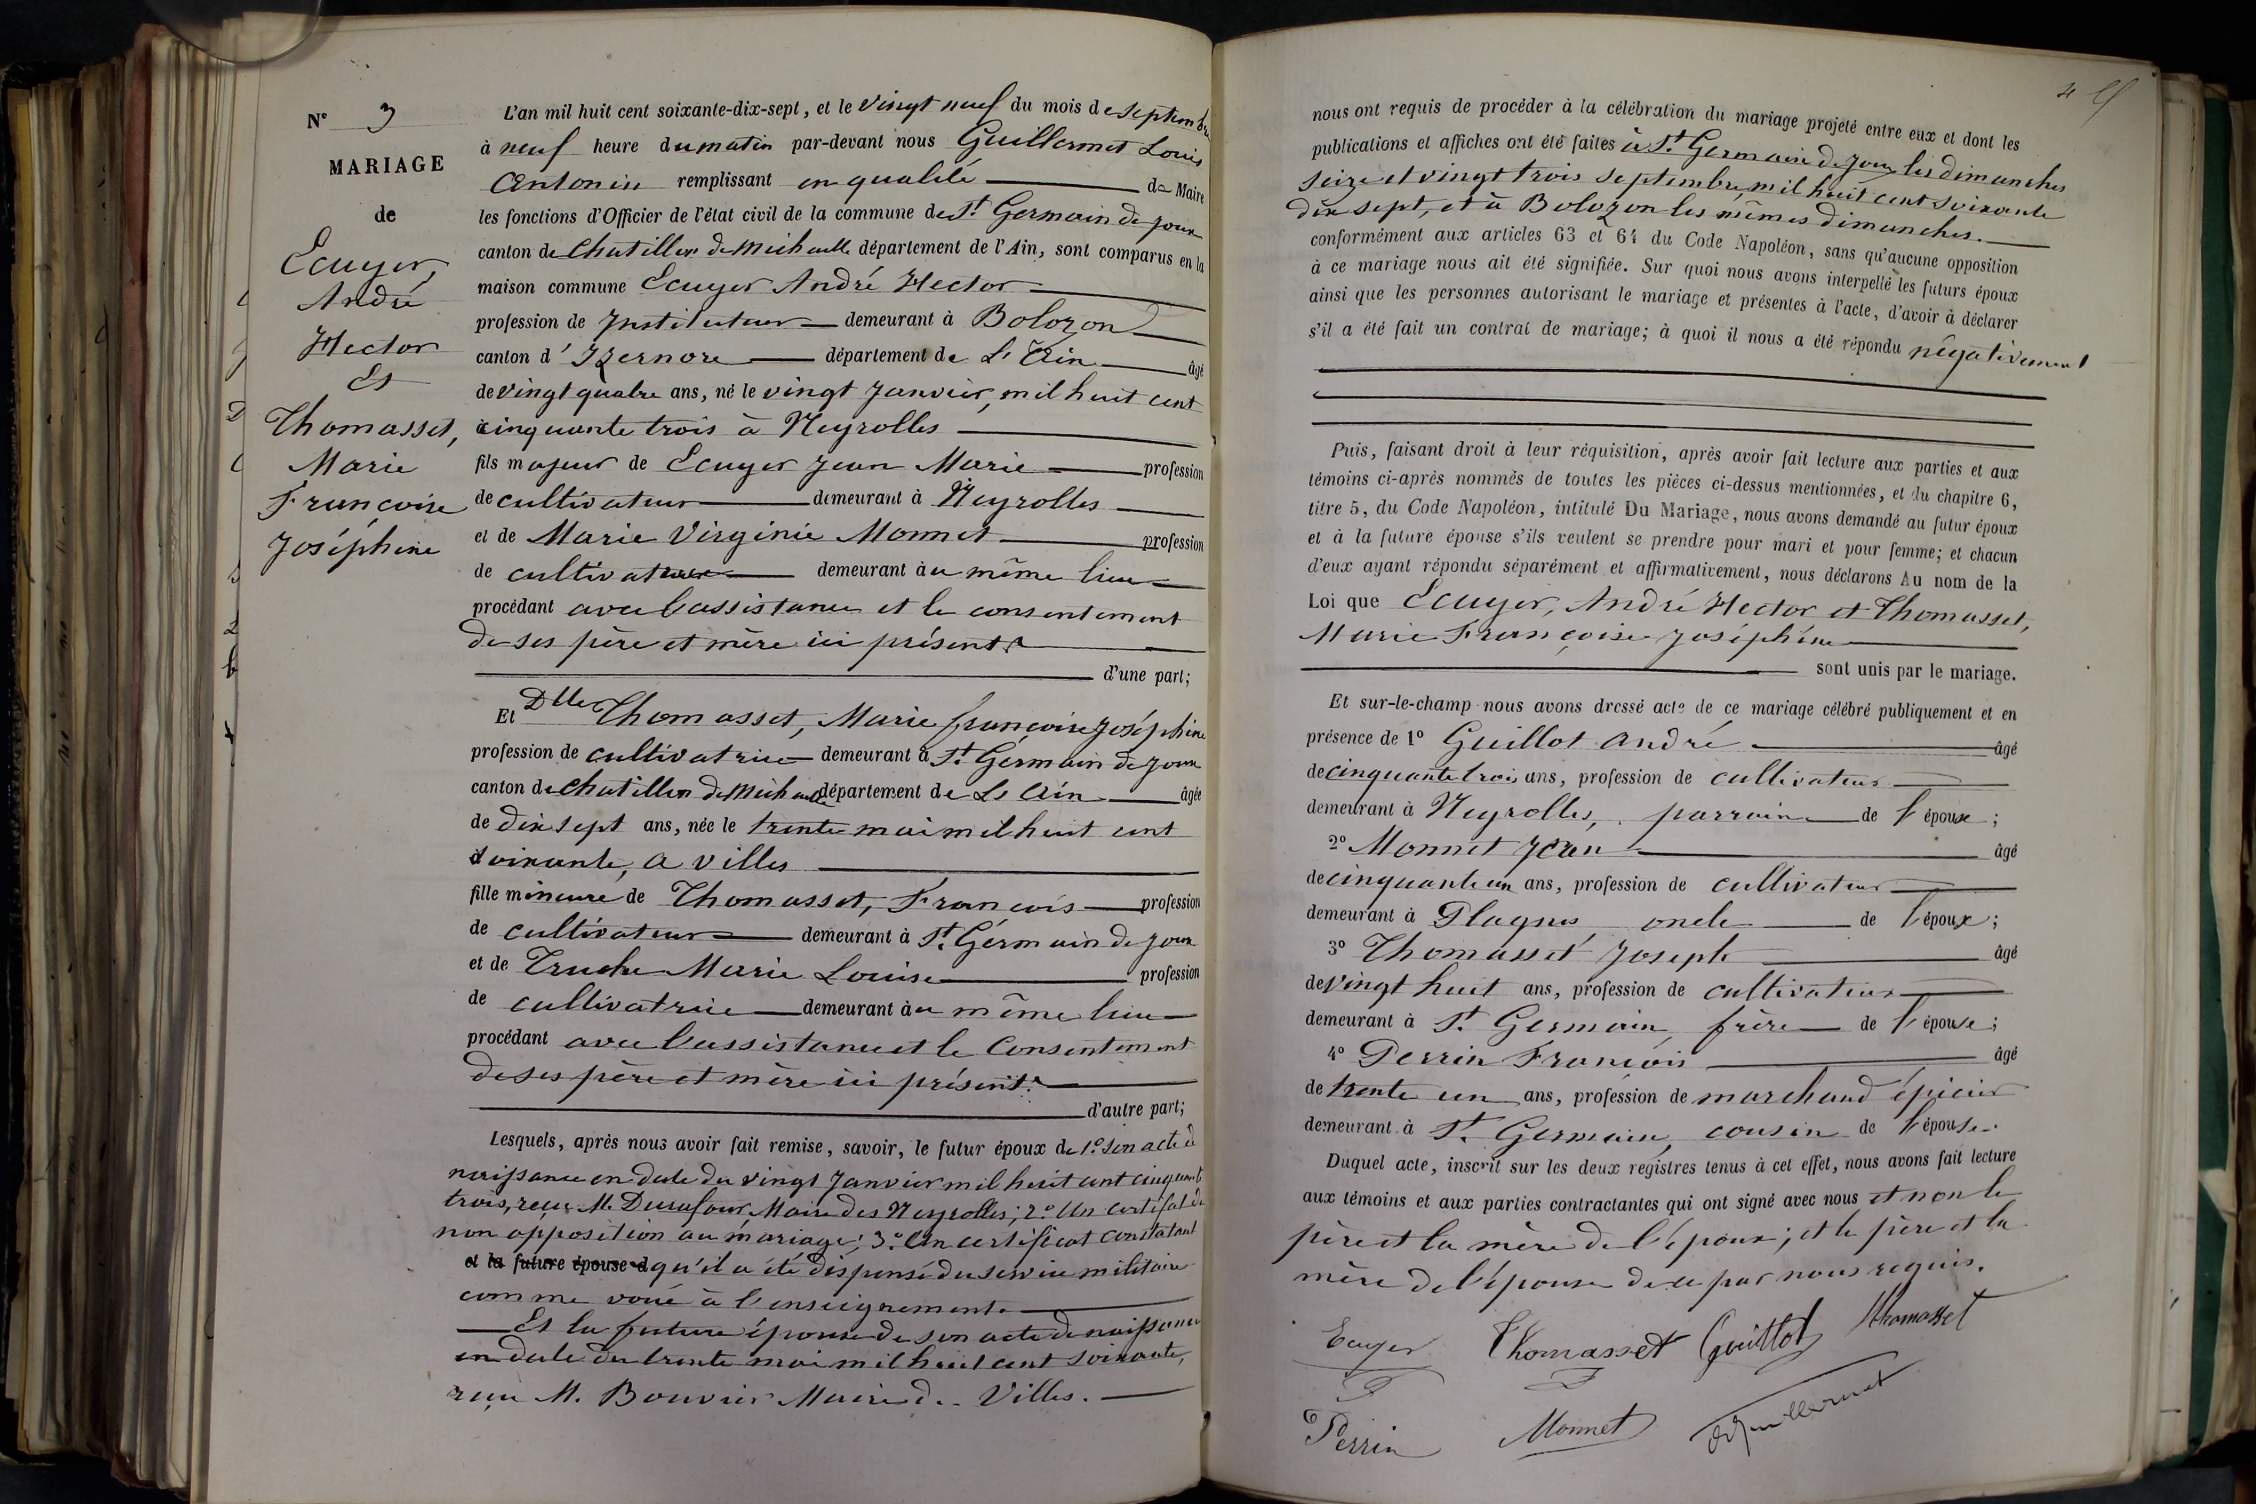 N° 3
MARIAGE
de
Ecuyer,
André
Hector
Et
Thomasset,
Marie
Françoise
Joséphine
L'an mil huit cent soixante-dix-sept, et le vingt neuf du mois de septembre
à neuf heure du matin par-devant nous Guillermet Louis
Antonin remplissant en qualité de Maire
les fonctions d'Officier de l'état civil de la commune de St Germain de Joux
canton de Chatillon de Michaille département de l'Ain, sont comparus en la
maison commune Ecuyer André Hector
profession de Instituteur demeurant à Bolozon
canton d'Izernore département de L'Ain âgé
de vingt quatre ans, né le vingt Janvier, mil huit cent
cinquante trois à Neyrolles
fils majeur de Ecuyer Jean Marie profession
de cultivateur demeurant à Neyrolles
et de Marie Virginie Monnet profession
de cultivateur demeurant au même lieu
procédant avec l'assistance et le consentement
de ses père et mère ici présents
d'une part;
Et Dlle Thomasset, Marie françoise Joséphine
profession de cultivatrice demeurant à St Germain de Joux
canton de Chatillon de Michaille département de L'Ain âgée
de dix sept ans, née le trente mai mil huit cent
soixante, a Villes
fille mineure de Thomasset, François profession
de cultivateur demeurant à St Germain de Joux
et de Truche Marie Louise profession
de cultivatrice demeurant au même lieu
procédant avec l'assistance et le Consentement
de ses père et mère ici présents
d'autre part;
Lesquels, après nous avoir fait remise, savoir, le futur époux de 1° son acte de
naissance en date du vingt Janvier mil huit cent cinquante
trois, reçu M. Dusafour, Maire des Neyrolles; 2° Un certificat de
non opposition au mariage; 3° Un certificat constatant
et la future épouse d qu'il a été dispensé du service militaire
comme voué à l'enseignement.
Et la future épouse de son acte de naissance
en date du trente mai mil huit cent soixante,
reçu M. Bouvier Maire de Villes.
nous ont requis de procéder à la célébration du mariage projeté entre eux et dont les
publications et affiches ont été faites à St Germain de Joux les dimanches
seize et vingt trois septembre, mil huit cent soixante
dix sept, et à Bolozon les mêmes dimanches.
conformément aux articles 63 et 64 du Code Napoléon, sans qu'aucune opposition
à ce mariage nous ait été signifiée. Sur quoi nous avons interpellé les futurs époux
ainsi que les personnes autorisant le mariage et présentes à l'acte, d'avoir à déclarer
s'il a été fait un contrat de mariage; à quoi il nous a été répondu négativement
Puis, faisant droit à leur réquisition, après avoir fait lecture aux parties et aux
témoins ci-après nommés de toutes les pièces ci-dessus mentionnées, et du chapitre 6,
titre 5, du Code Napoléon, intitulé Du Mariage, nous avons demandé au futur époux
et à la future épouse s'ils veulent se prendre pour mari et pour femme; et chacun
d'eux ayant répondu séparément et affirmativement, nous déclarons Au nom de la
Loi que Ecuyer, André Hector et Thomasset,
Marie Françoise Joséphine
sont unis par le mariage.
Et sur-le-champ nous avons dressé acte de ce mariage célébré publiquement et en
présence de 1° Guillot André âgé
de cinquante trois ans, profession de cultivateur
demeurant à Neyrolles, parrain de l'époux;
2° Monnet Jean âgé
de cinquante un ans, profession de cultivateur
demeurant à Plagnes oncle de l'époux;
3° Thomasset Joseph âgé
de vingt huit ans, profession de cultivateur
demeurant à St Germain, frère de l'épouse;
4° Perrin François âgé
de trente un ans, profession de marchand épicier
demeurant à St Germain, cousin de l'épouse.
Duquel acte, inscrit sur les deux registres tenus à cet effet, nous avons fait lecture
aux témoins et aux parties contractantes qui ont signé avec nous et non le
père et la mère de l'époux; et le père et la
mère de l'épouse de ce par nous requis.
Ecuyer Thomasset Guillot Thomasset
Perrin Monnet Guillermet